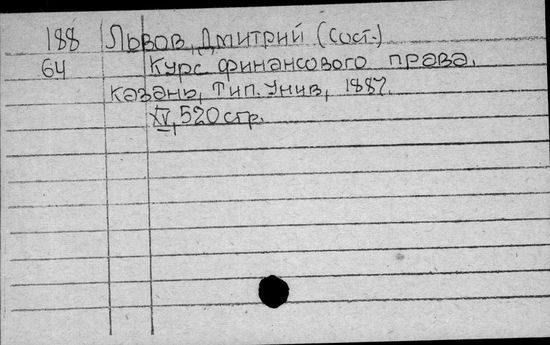 188 Львов, Дмитрий (сост.)
64 Курс финансового права.
Казань, Тип. Унив, 1887.
XV, 520 стр.